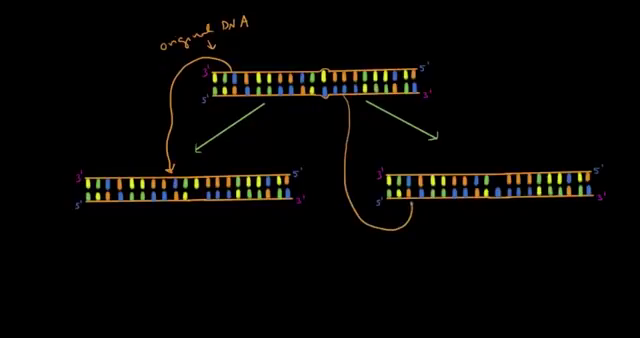 original DNA
3' 5'
5' 3'
3' 5'
5' 3'
3' 5'
5' 3'